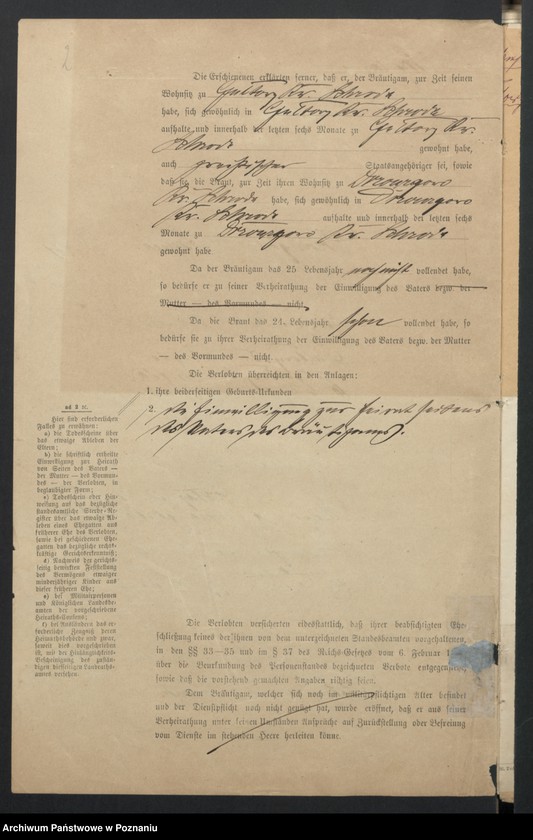 2
Die Erschienenen erklärten ferner, daß er, der Bräutigam, zur Zeit seinen
Wohnsitz zu Kr. Schroda
habe, sich gewöhnlich in Kr. Schroda
aufhalte und innerhalb der letzten sechs Monate zu Kr.
Schroda gewohnt habe,
auch preußischer Staatsangehöriger sei, sowie
daß sie, die Braut, zur Zeit ihren Wohnsitz zu
Kr. Schroda habe, sich gewöhnlich in
Kr. Schroda aufhalte und innerhalb der letzten sechs
Monate zu Kr. Schroda
gewohnt habe.
Da der Bräutigam das 25 Lebensjahr noch nicht vollendet habe,
so bedürfe er zu seiner Verheirathung der Einwilligung des Vaters bezw. der
Mutter — des Vormundes — nicht.
Da die Braut das 24. Lebensjahr schon vollendet habe, so
bedürfe sie zu ihrer Verheirathung der Einwilligung des Vaters bezw. der Mutter
— des Vormundes — nicht.
Die Verlobten überreichten in den Anlagen:
1. ihre beiderseitigen Geburts-Urkunden
2. die Einwilligung zur Heirat seitens
des Vaters des Bräutigams.
ad 2 ꝛc.
Hier sind erforderlichen
Falles zu erwähnen:
a) die Todesscheine über
das etwaige Ableben der
Eltern;
b) die schriftlich ertheilte
Einwilligung zur Heirath
von Seiten des Vaters —
der Mutter — des Vormun-
des — der Verlobten, in
beglaubigter Form;
c) Todesschein oder Hin-
weisung auf das bezügliche
standesamtliche Sterbe-Re-
gister über das etwaige Ab-
leben eines Ehegatten aus
früherer Ehe des Verlobten,
sowie bei geschiedenen Ehe-
gatten das bezügliche rechts-
kräftige Gerichtserkenntniß;
d) Nachweis der gerichts-
seitig bewirkten Feststellung
des Vermögens etwaiger
minderjähriger Kinder aus
dieser früheren Ehe;
e) bei Militairpersonen
und Königlichen Landesbe-
amten der vorgeschriebene
Heiraths-Consens;
f) bei Ausländern das er-
forderliche Zeugniß ihrer
Heimathsbehörde und zwar,
soweit dies vorgeschrieben
ist, mit der
Bescheinigung des zustän-
digen diesseitigen Landraths-
amtes versehen.
Die Verlobten versicherten eidesstattlich, daß ihrer beabsichtigten Ehe-
schließung keines der ihnen von dem unterzeichneten Standesbeamten vorgehaltenen,
in den §§ 33—35 und im § 37 des Reichs-Gesetzes vom 6. Februar
über die Beurkundung des Personenstandes bezeichneten Verbote
sowie daß die vorstehend gemachten Angaben richtig seien.
Dem Bräutigam, welcher sich noch im militairpflichtigen Alter befindet
und der Dienstpflicht noch nicht genügt hat, wurde eröffnet, daß er aus seiner
Verheirathung unter keinen Umständen Ansprüche auf Zurückstellung oder Befreiung
vom Dienste im stehenden Heere herleiten könne.
Archiwum Państwowe w Poznaniu